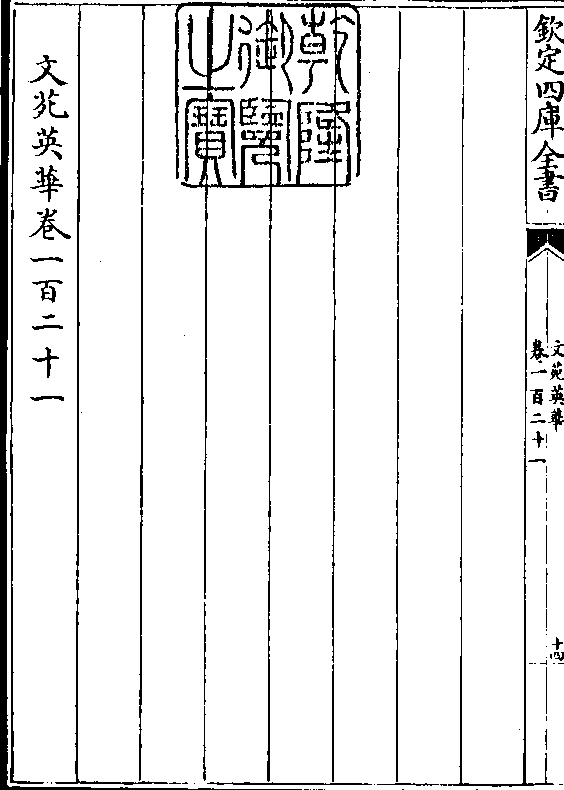 欽定四庫全書
文苑英華
卷一百二十一
十四
乾隆
御覽
之寶
文苑英華卷一百二十一